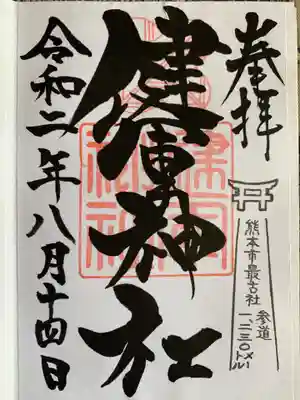 奉拝
熊本市最古社
参道
一、二三〇メートル
健軍神社
令和二年八月十四日